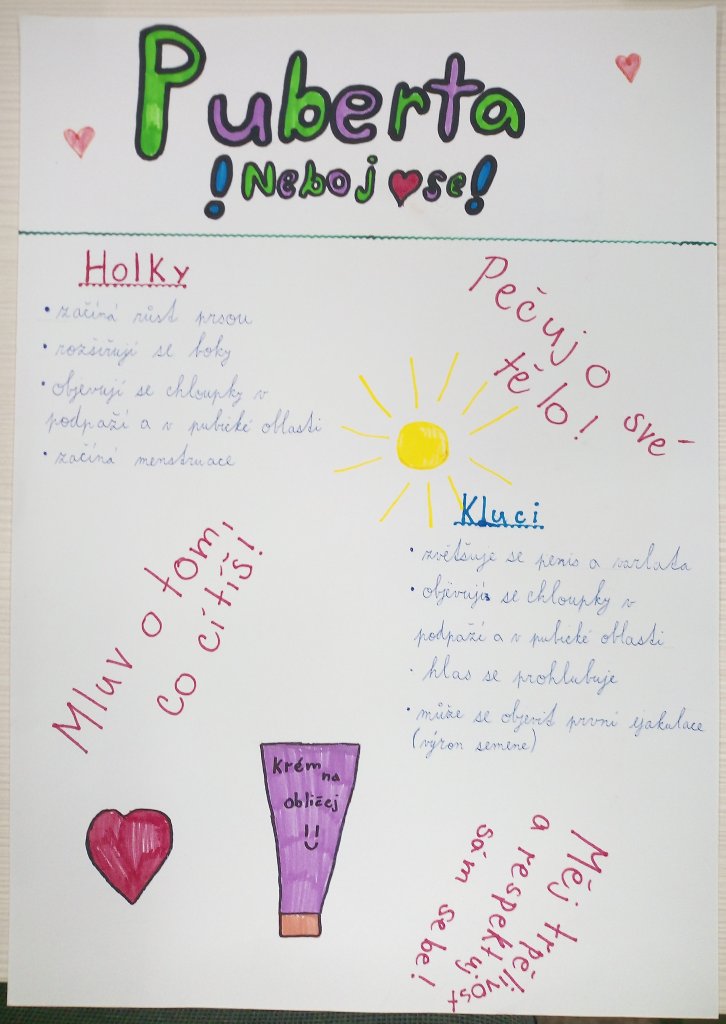 Puberta
!Neboj se!
Holky
• začíná růst prsou
• rozšiřují se boky
• objevují se chloupky v
podpaží a v pubické oblasti
• začíná menstruace
Pečuj o své
tělo!
Kluci
• zvětšuje se penis a varlata
• objevují se chloupky v
podpaží a v pubické oblasti
• hlas se prohlubuje
• může se objevit první ejakulace
(výron semene)
Mluv o tom,
co cítíš!
Krém na
obličej
!!
Měj trpělivost
a respektuj
sám sebe!